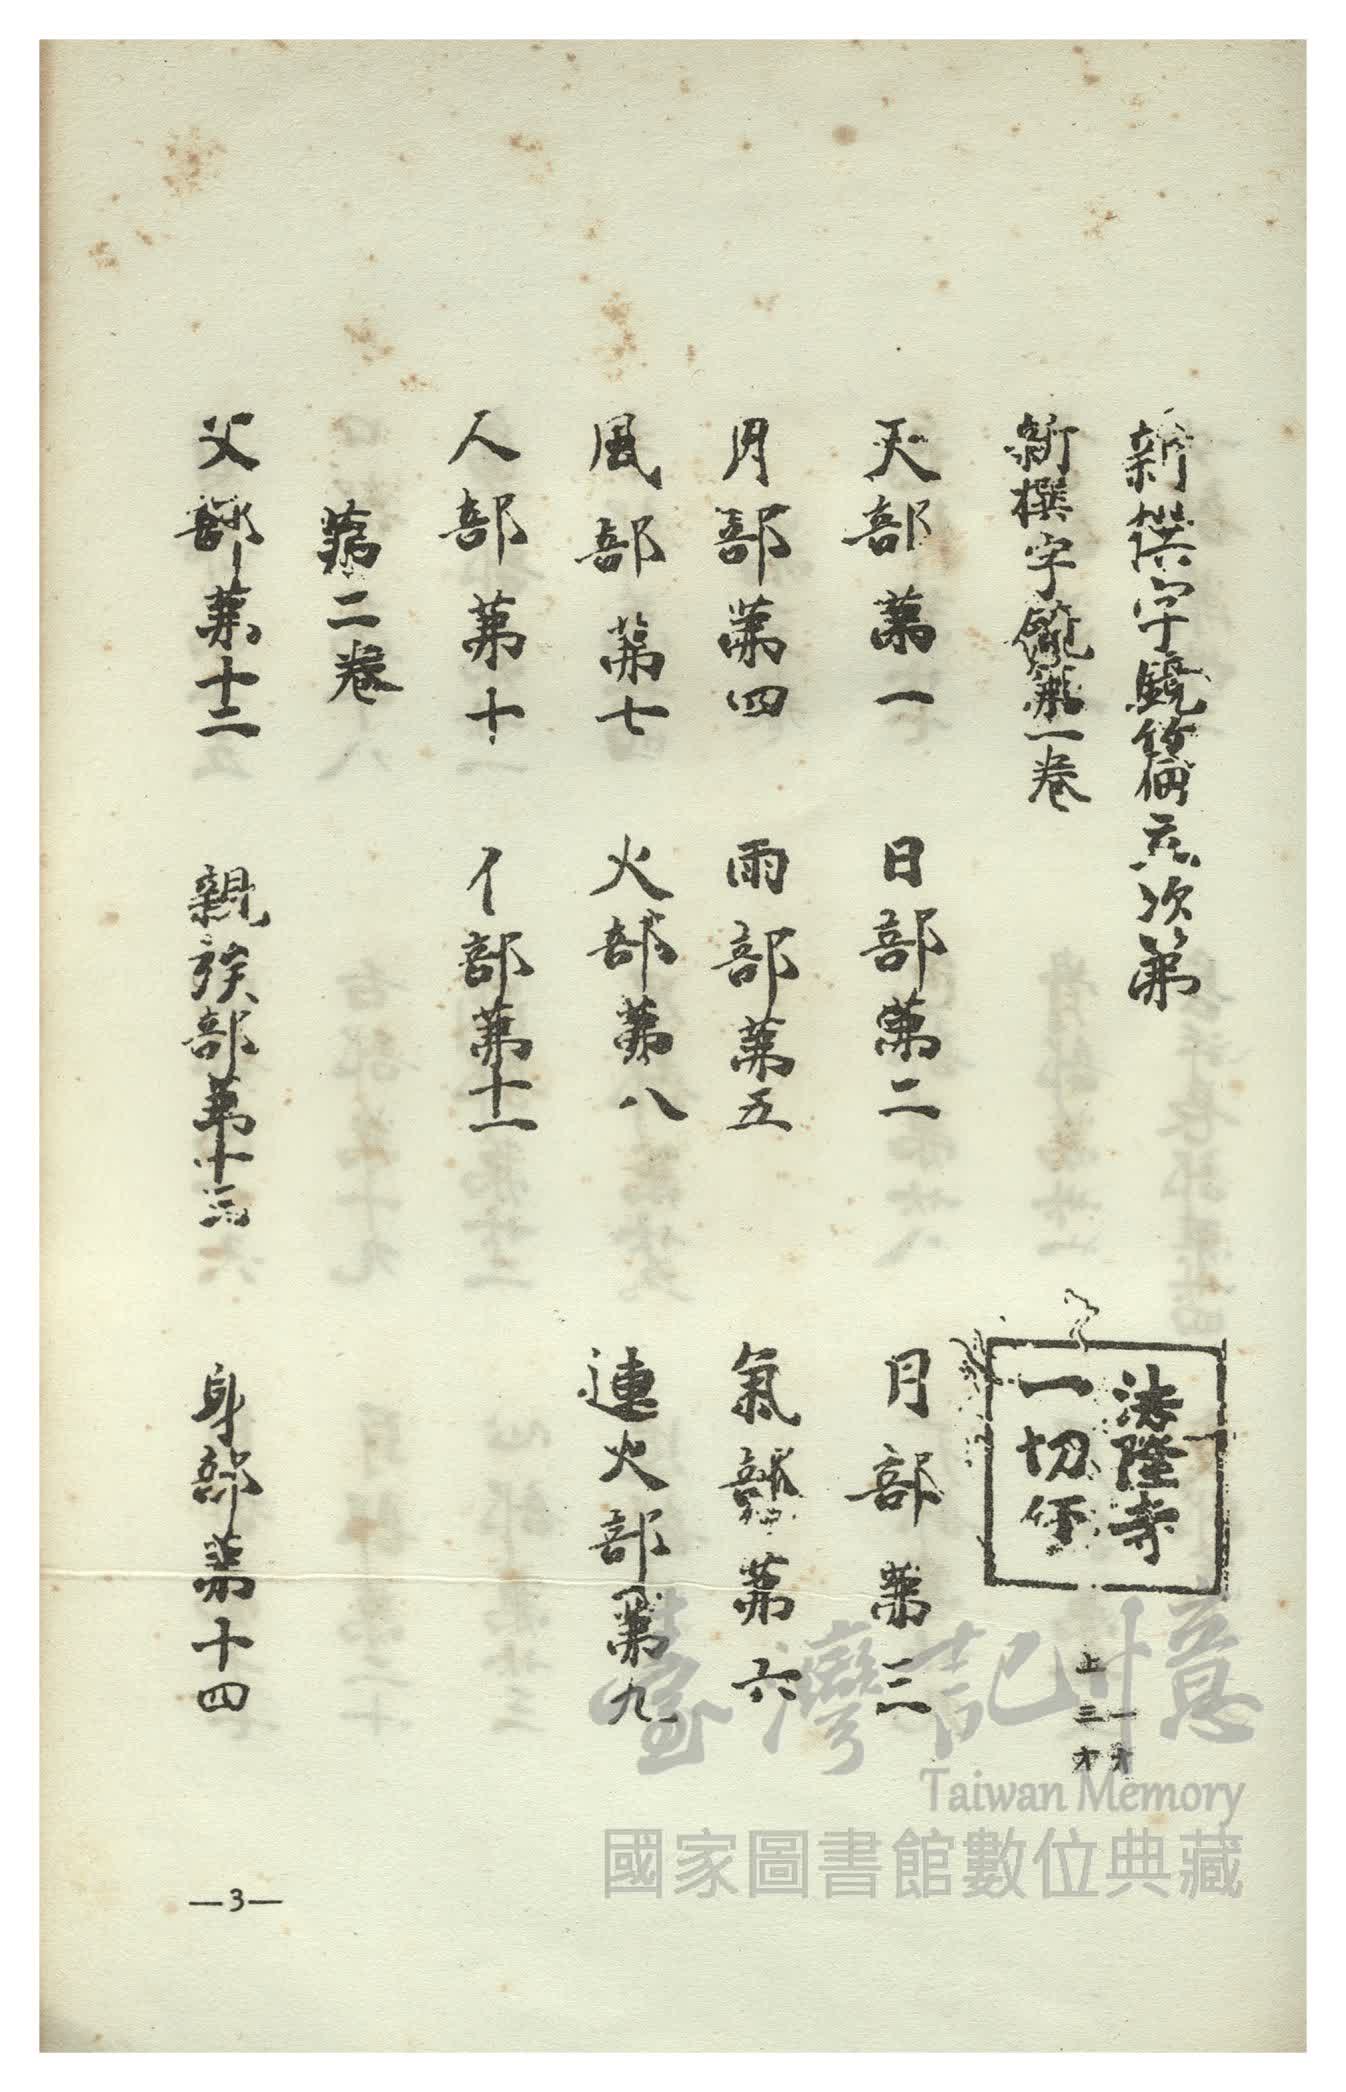 新撰字鏡篇立次第
新撰字鏡第一卷
天部第一 日部第二 月部第三
月部第四 雨部第五 氣部第六
風部第七 火部第八 連火部第九
人部第十 亻部第十一
第二卷
父部第十二 親族部第十三 身部第十四
法隆寺
一切经
一オ
上三オ
—3—
臺灣記憶
Taiwan Memory
國家圖書館數位典藏